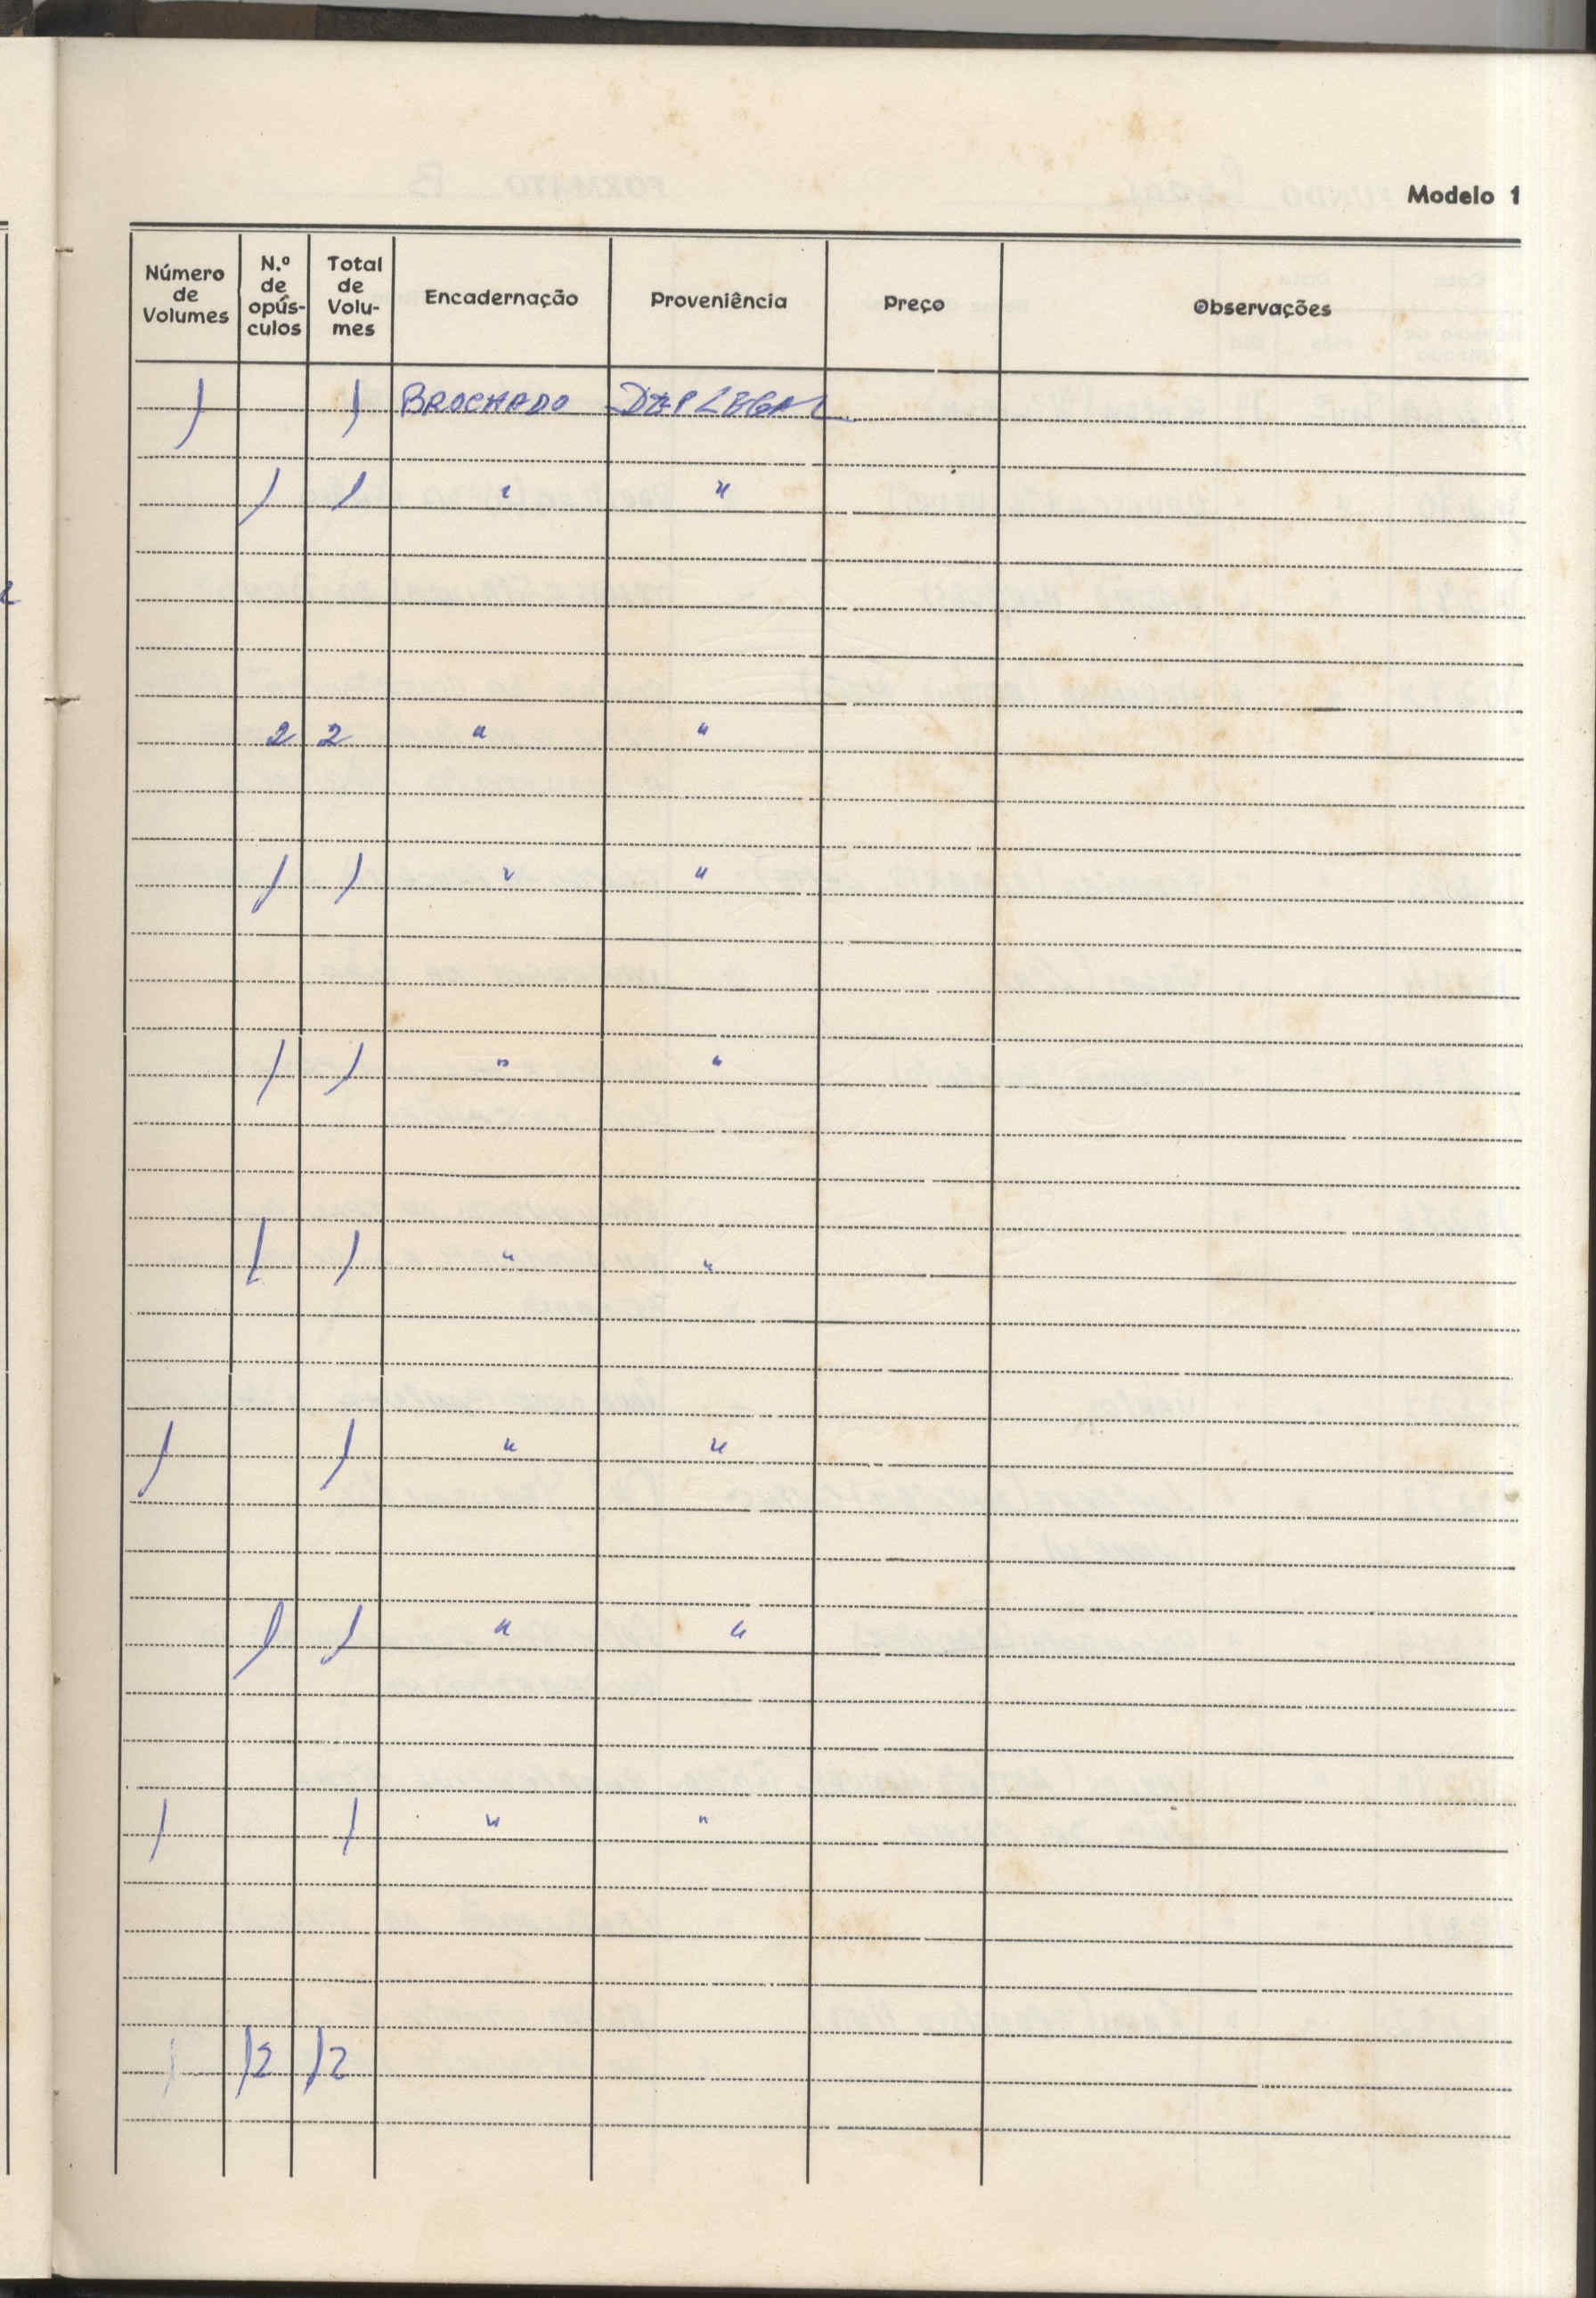 Modelo 1
Número de Volumes | N.º de opús-culos | Total de Volu-mes | Encadernação | Proveniência | Preço | Observações
1 | | 1 | BROCHADO | DEP LEGAL
| 1 | 1 | " | "
| 2 | 2 | " | "
| 1 | 1 | " | "
| 1 | 1 | " | "
| 1 | 1 | " | "
1 | | 1 | " | "
| 1 | 1 | " | "
1 | | 1 | " | "
| 12 | 12